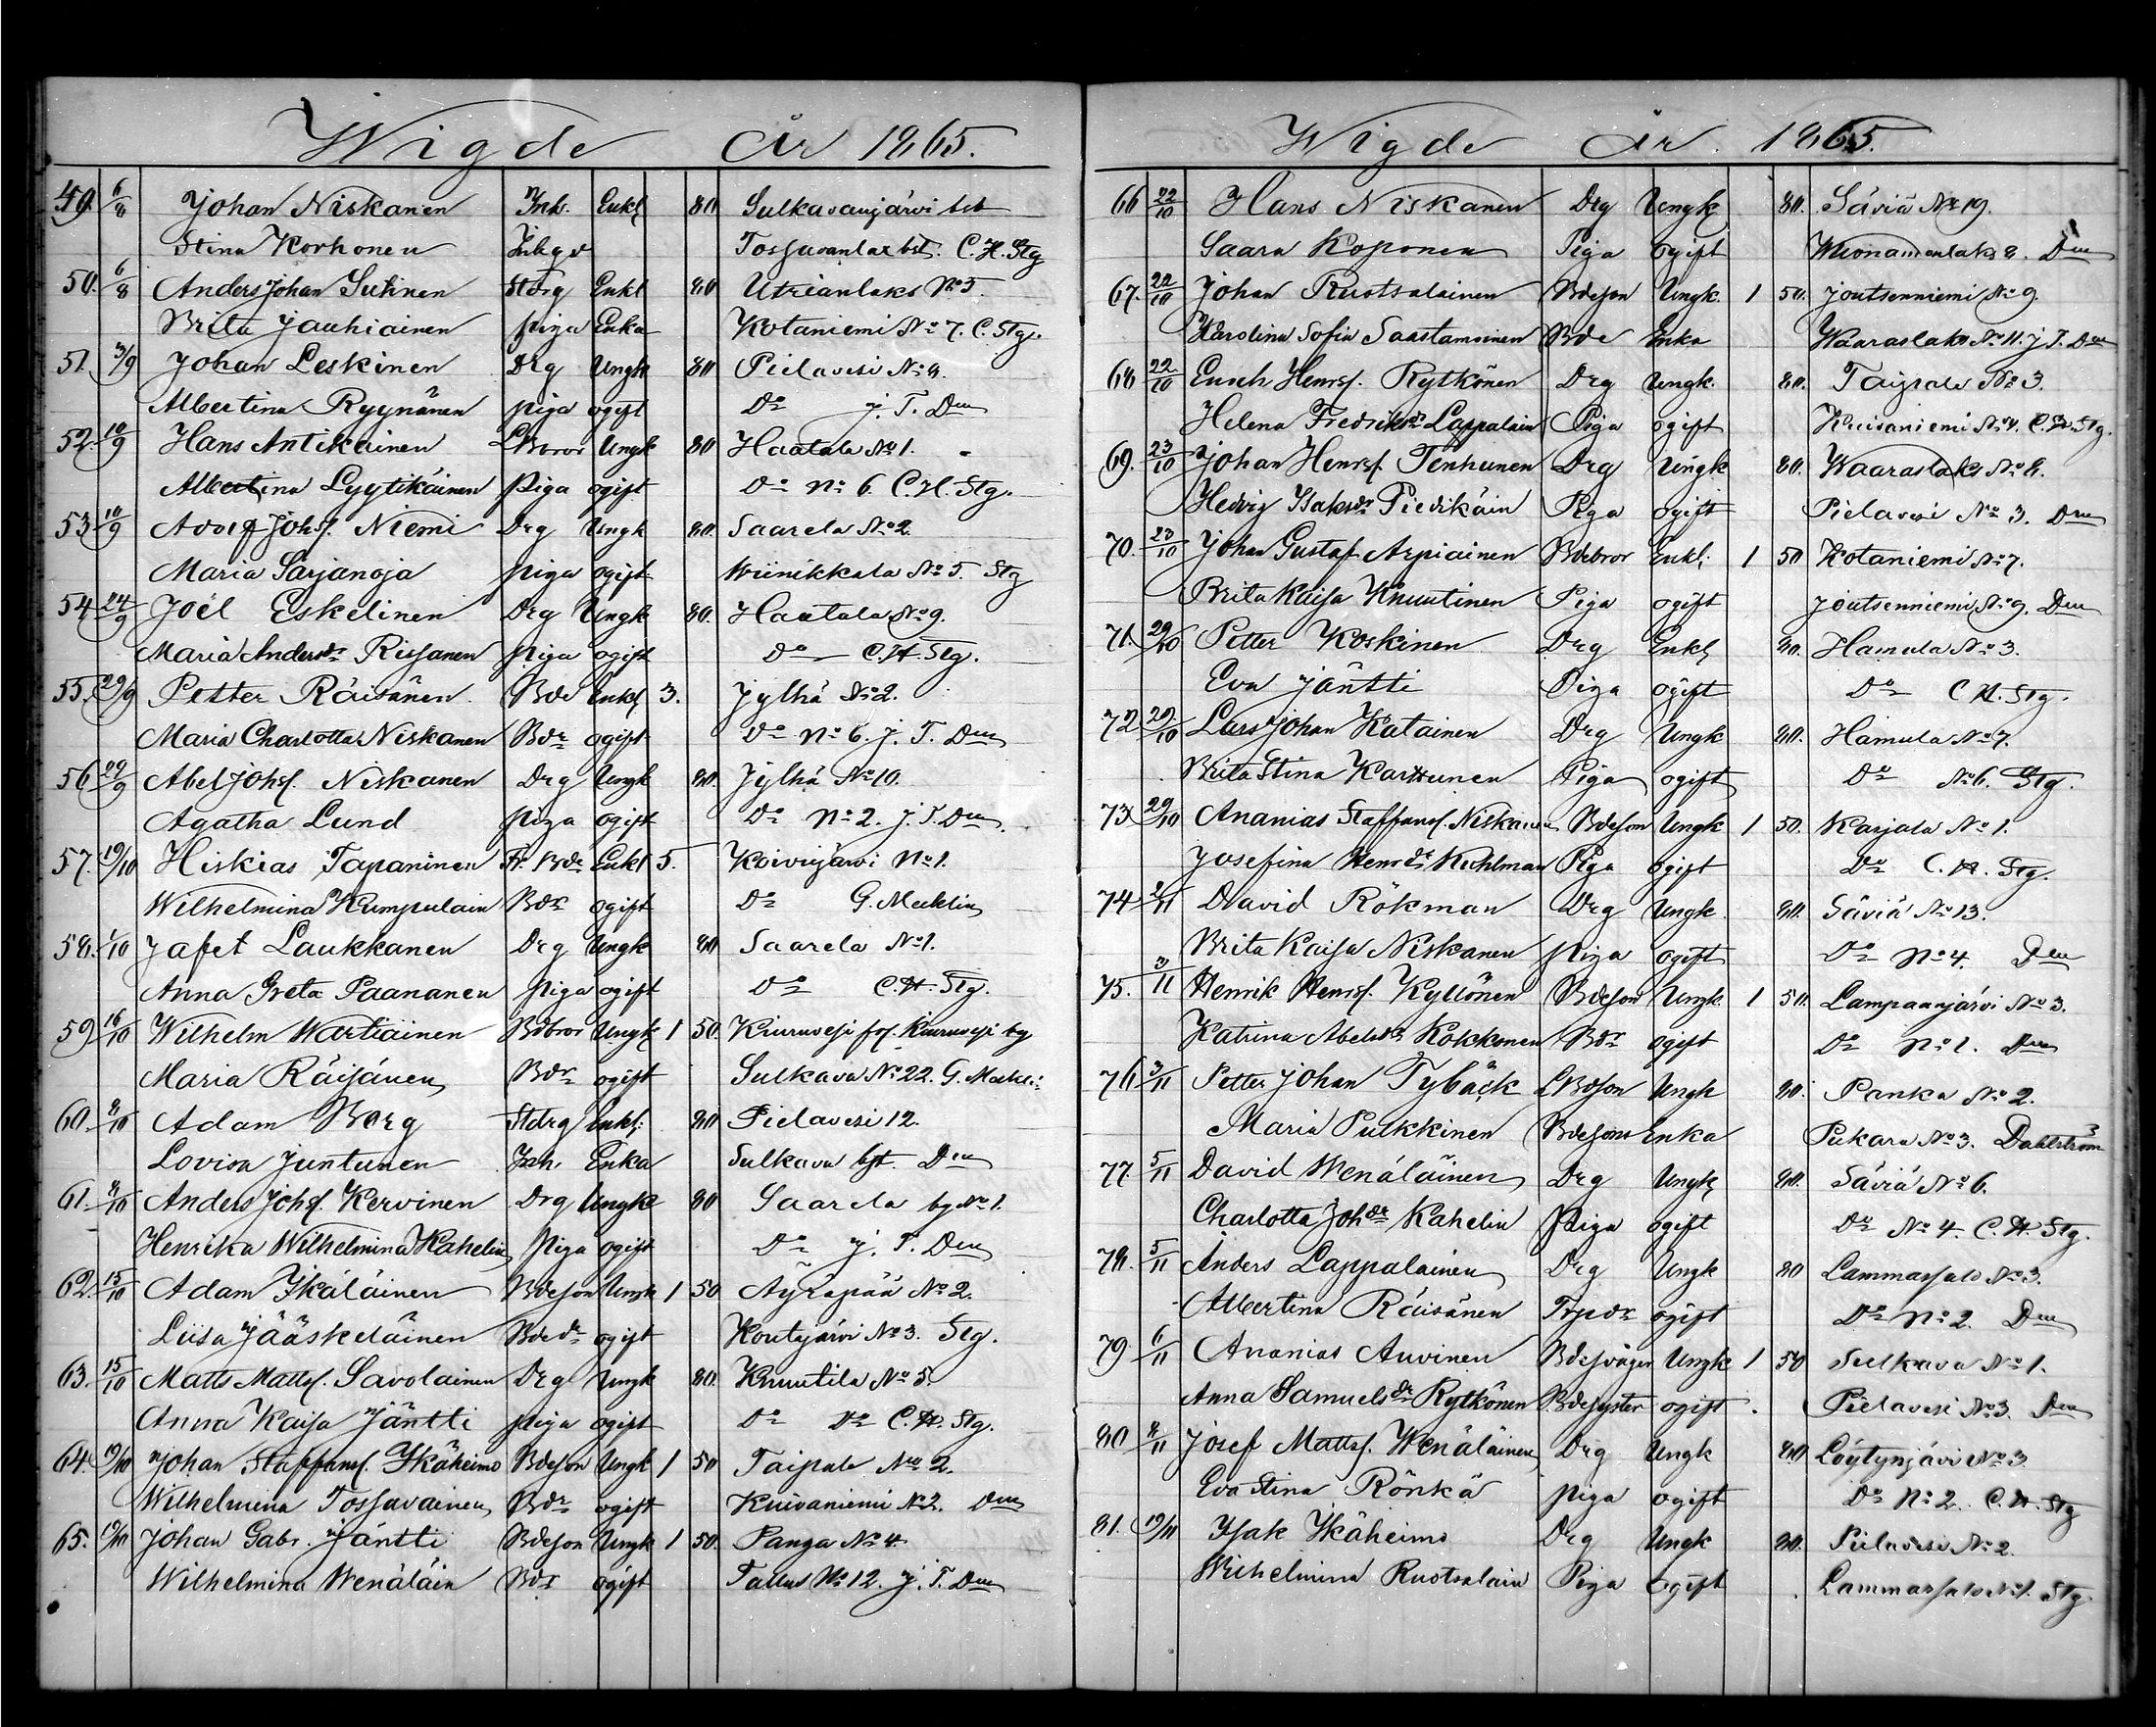 Wigde År 1865.
49. 6/8 Johan Niskanen Inh. Enkl 80 Sulkavanjärvi bst
Stina Korhonen Inhge Tossavanlax bst. C. H. Stg
50. 6/8 Anders Johan Sutinen Stdrg Enkl 80 Utrianlaks No 5.
Brita Jauhiainen piga Enka Kotaniemi No 7. C. Stg.
51. 3/9 Johan Leskinen Drg Ungk 80 Pielavesi No 8.
Albertina Ryynänen piga ogift Do J. T. Dm
52. 10/9 Hans Antikainen LBbror Ungk 80 Haatala No 1.
Albertina Lyytikäinen Piga ogift Do No 6. C. H. Stg.
53 10/9 Adolf Johsf. Niemi Drg Ungk 80. Saarela No 2.
Maria Sarjanoja piga ogift Wiinikkala No 5. Stg
54 24/9 Joël Eskelinen Drg Ungk 80. Haatala No 9.
Maria Andersdr Rissanen piga ogift Do C. H. Stg.
55. 29/9 Petter Räisänen Bde Enkl 3. Jylhä No 2.
Maria Charlotta Niskanen Bdr ogift Do No 6. J. T. Dm
56 29/9 Abel Johsf. Niskanen Drg Ungk 80. Jylhä No 10.
Agatha Lund piga ogift Do No 2. J. T. Dm.
57. 19/10 Hiskias Tapaninen Fr. Bde Enkl 5. Koivujärvi No 1.
Wilhelmina Kumpulain Bdr ogift Do G. Mecklin
58. 1/10 Jafet Laukkanen Drg Ungk 80 Saarela No 1.
Anna Greta Paananen piga ogift Do C. H. Stg.
59 16/10 Wilhelm Wartiainen Bdbror Ungk 1 50. Kiuruvesi fös. Kiuruvesi by
Maria Räisänen Bdr ogift Sulkava No 22. G. Meckli:
60. 8/10 Adam Borg Stdrg Enkl: 80 Pielavesi 12.
Lovisa Juntunen Inh. Enka Sulkava bst. Dm
61. 8/10 Anders Johsf. Kervinen Drg Ungk 80 Saarela by No 1.
Henrika Wilhelmina Kahelin Piga ogift Do J. T. Dm
62. 15/10 Adam Ikäläinen Bdeson Ungk 1 50 Äyräpää No 2.
Liisa Jääskeläinen Bdedr ogift Koutajärvi No 3. Stg.
63. 15/10 Matts Mattsf. Savolainen Drg Ungk 80. Knuutila No 5.
Anna Kaisa Jäntti piga ogift Do Do C. H. Stg.
64. 19/10 Johan Staffansf. Ikäheimo Bdeson Ungk 1 50 Taipale No 2.
Wilhelmina Tossavainen Bdr ogift Kuivaniemi No 2. Dm
65. 19/10 Johan Gabr. Jäntti Bdeson Ungk 1 50. Panga No 4.
Wilhelmina Wenäläin Bdr ogift Tallus No 12. J. T. Dm
Wigde År. 1865.
66 22/10 Hans Niskanen Drg Ungk 80. Säviä No 19.
Saara Koponen Piga ogift Wuonamanlaks 8. Dm
67. 22/10 Johan Ruotsalainen Bdeson Ungk. 1 50. Joutsenniemi No 9.
Karolina Sofia Saastamoinen Bde Enka Waaraslaks No 11. J. T. Dm
68 22/10 Enoch Henrsf. Rytkönen Drg Ungk. 80. Taipale No 3.
Helena Fredriksdr Lappalain Piga ogift Kuivaniemi No 4. C. H. Stg.
69. 23/10 Johan Henrsf. Tenhunen Drg Ungk 80. Waaraslaks No 8.
Hedvig Isaksdr Piedikäin Piga ogift Pielavesi No 3. Dm
70. 23/10 Johan Gustaf Arpiainen Bdebror Enkl: 1 50 Kotaniemi No 7.
Brita Kaisa Knuutinen Piga ogift Joutsenniemi No 9. Dm
71. 29/10 Petter Koskinen Drg Enkl 80. Hamula No 3.
Eva Jäntti Piga ogift Do C. H. Stg.
72 29/10 Lars Johan Katainen Drg Ungk 80. Hamula No 7.
Brita Stina Karttunen Piga ogift Do No 6. Stg.
73 29/10 Ananias Staffansf. Niskanen Bdeson Ungk 1 50. Karjala No 1.
Josefina Henrdr Kuhlman Piga ogift Do C. H. Stg.
74 2/11 David Rökman Drg Ungk 80. Säviä No 13.
Brita Kaisa Niskanen piga ogift Do No 4. Dm
75. 3/11 Henrik Henrsf. Kyllönen Bdeson Ungk 1 50. Lampaanjärvi No 3.
Katrina Abelsdr Kokkonen Bdr ogift Do No 1. Dm
76 3/11 Petter Johan Tybäck LBdson Ungk 80. Panka No 2.
Maria Pulkkinen Bdesons Enka Pukara No 3. Dahlström
77. 5/11 David Wenäläinen Drg Ungk 80. Säviä No 6.
Charlotta Johdr Kahelin Piga ogift Do No 4. C. H. Stg.
78. 5/11 Anders Lappalainen Drg Ungk 80 Lammassalo No 3.
Albertina Räisänen Trpdr ogift Do No 2. Dm
79. 6/11 Ananias Auvinen Bdesvåger Ungk 1 50 Sulkava No 1.
Anna Samuelsdr Rytkönen Bdesyster ogift. Pielavesi No 3. Dm
80 8/11 Josef Mattsf. Wenäläinen Drg Ungk 80 Löytynjävi No 3
Eva Stina Rönkä piga ogift Do No 2. C. H. Stg
81. 19/11 Isak Ikäheimo Drg Ungk 80. Pielavesi No 2.
Wilhelmina Ruotsalain Piga ogift Lammassalo No 1. Stg.